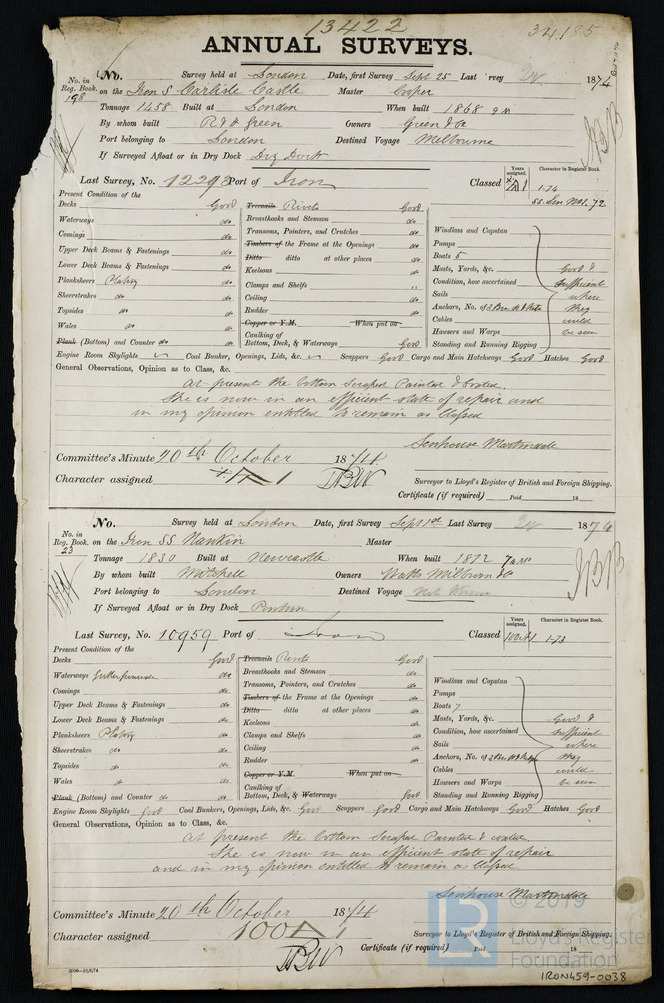 13422
34185
ANNUAL SURVEYS.
No. Survey held at London Date, first Survey Sept 25 Last Survey 1874
No. in Reg. Book. 198 on the Iron S Carlisle Castle Master Cooper
Tonnage 1458 Built at London When built 1868
By whom built R & H Green Owners Green & Co
Port belonging to London Destined Voyage Melbourne
If Surveyed Afloat or in Dry Dock Dry Dock
Last Survey, No. 12293 Port of Iron Classed
Years assigned.
Character in Register Book.
1.74
SS. Lon No1. 72
Present Condition of the
Decks Good Treenails Rivets Good
Waterways do Breasthooks and Stemson do
Comings do Transoms, Pointers, and Crutches do
Upper Deck Beams & Fastenings do Timbers of the Frame at the Openings do
Lower Deck Beams & Fastenings do Ditto ditto at other places do
Planksheers Plating do Keelsons do
Sheerstrakes do do Clamps and Shelfs
Topsides do do Ceiling do
Wales do do Rudder do
Copper or Y.M. When put on
Plank (Bottom) and Counter do do Caulking of Bottom, Deck, & Waterways Good
Windlass and Capstan
Pumps
Boats 5
Masts, Yards, &c. Good &
Condition, how ascertained sufficient
Sails where
Anchors, No. of they
Cables could
Hawsers and Warps be seen
Standing and Running Rigging
Engine Room Skylights Coal Bunker, Openings, Lids, &c. Scuppers Good Cargo and Main Hatchways Good Hatches Good
General Observations, Opinion as to Class, &c.
At present the bottom Scraped Painted & coated.
She is now in an efficient state of repair and
in my opinion entitled to remain as Classed
Senhouse Martindale
Committee's Minute 20th October 1874.
Character assigned
Surveyor to Lloyd's Register of British and Foreign Shipping.
Certificate (if required) Paid 18
No. Survey held at London Date, first Survey Sept 1st Last Survey 1874
No. in Reg. Book. 23 on the Iron SS Nankin Master
Tonnage 1830 Built at Newcastle When built 1872
By whom built Mitchell Owners Watts Milburn & Co
Port belonging to London Destined Voyage
If Surveyed Afloat or in Dry Dock
Last Survey, No. 10959 Port of Iron Classed
Years assigned.
Character in Register Book.
1.73
Present Condition of the
Decks Good Treenails Rivets Good
Waterways do Breasthooks and Stemson do
Comings do Transoms, Pointers, and Crutches do
Upper Deck Beams & Fastenings do Timbers of the Frame at the Openings do
Lower Deck Beams & Fastenings do Ditto ditto at other places do
Planksheers Plating do Keelsons do
Sheerstrakes do do Clamps and Shelfs do
Topsides do do Ceiling do
Wales do do Rudder do
Copper or Y.M. When put on
Plank (Bottom) and Counter do do Caulking of Bottom, Deck, & Waterways Good
Windlass and Capstan
Pumps
Boats 7
Masts, Yards, &c. Good &
Condition, how ascertained sufficient
Sails where
Anchors, No. of they
Cables could
Hawsers and Warps be seen
Standing and Running Rigging
Engine Room Skylights Good Coal Bunkers, Openings, Lids, &c. Good Scuppers Good Cargo and Main Hatchways Good Hatches Good
General Observations, Opinion as to Class, &c.
At present the bottom Scraped Painted & coated
She is now in an efficient state of repair
and in my opinion entitled to remain as Classed
Senhouse Martindale
Committee's Minute 20th October 1874
Character assigned 100A1
Surveyor to Lloyd's Register of British and Foreign Shipping.
Certificate (if required) Paid 18
LR
© 2019
Lloyd's Register
Foundation
IRON459-0038